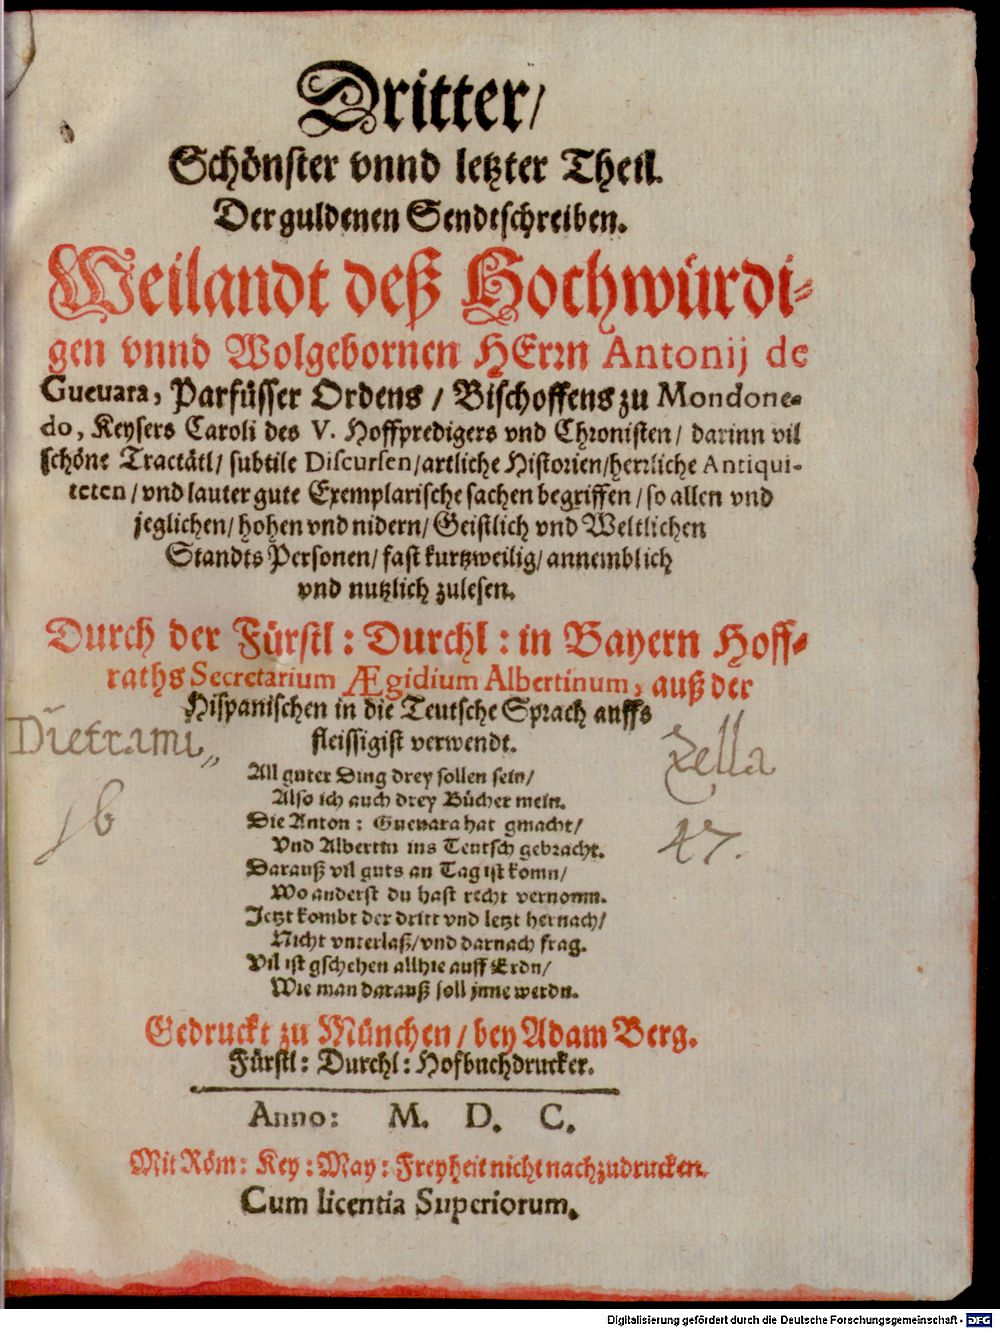 Dritter/
Schönster vnnd letzter Theil.
Der guldenen Sendtschreiben.
Weilandt deß Hochwürdi-
gen vnnd Wolgebornen HErrn Antonij de
Gueuara, Parfüsser Ordens / Bischoffens zu Mondone-
do, Keysers Caroli des V. Hoffpredigers vnd Chronisten / darinn vil
schöne Tractätl / subtile Discursen / artliche Historien / herrliche Antiqui-
teten / vnd lauter gute Exemplarische sachen begriffen / so allen vnd
jeglichen / hohen vnd nidern / Geistlich vnd Weltlichen
Standts Personen / fast kurtzweilig / annemblich
vnd nutzlich zulesen.
Durch der Fürstl: Durchl: in Bayern Hoff-
raths Secretarium Ægidium Albertinum, auß der
Hispanischen in die Teutsche Sprach auffs
fleissigist verwendt.
All guter Ding drey sollen sein/
Also ich auch drey Bücher mein.
Die Anton: Gueuara hat gmacht/
Vnd Albertin ins Teutsch gebracht.
Darauß vil guts an Tag ist komn/
Wo anderst du hast recht vernomn.
Jetzt kombt der dritt vnd letzt hernach/
Nicht vnterlaß / vnd darnach frag.
Vil ist gschehen allhie auff Erdn/
Wie man darauß soll jnne werdn.
Gedruckt zu München / bey Adam Berg.
Fürstl: Durchl: Hofbuchdrucker.
Anno: M. D. C.
Mit Röm: Key: May: Freyheit nicht nachzudrucken.
Cum licentia Superiorum.
Zella
47.
Digitalisierung gefördert durch die Deutsche Forschungsgemeinschaft - DFG